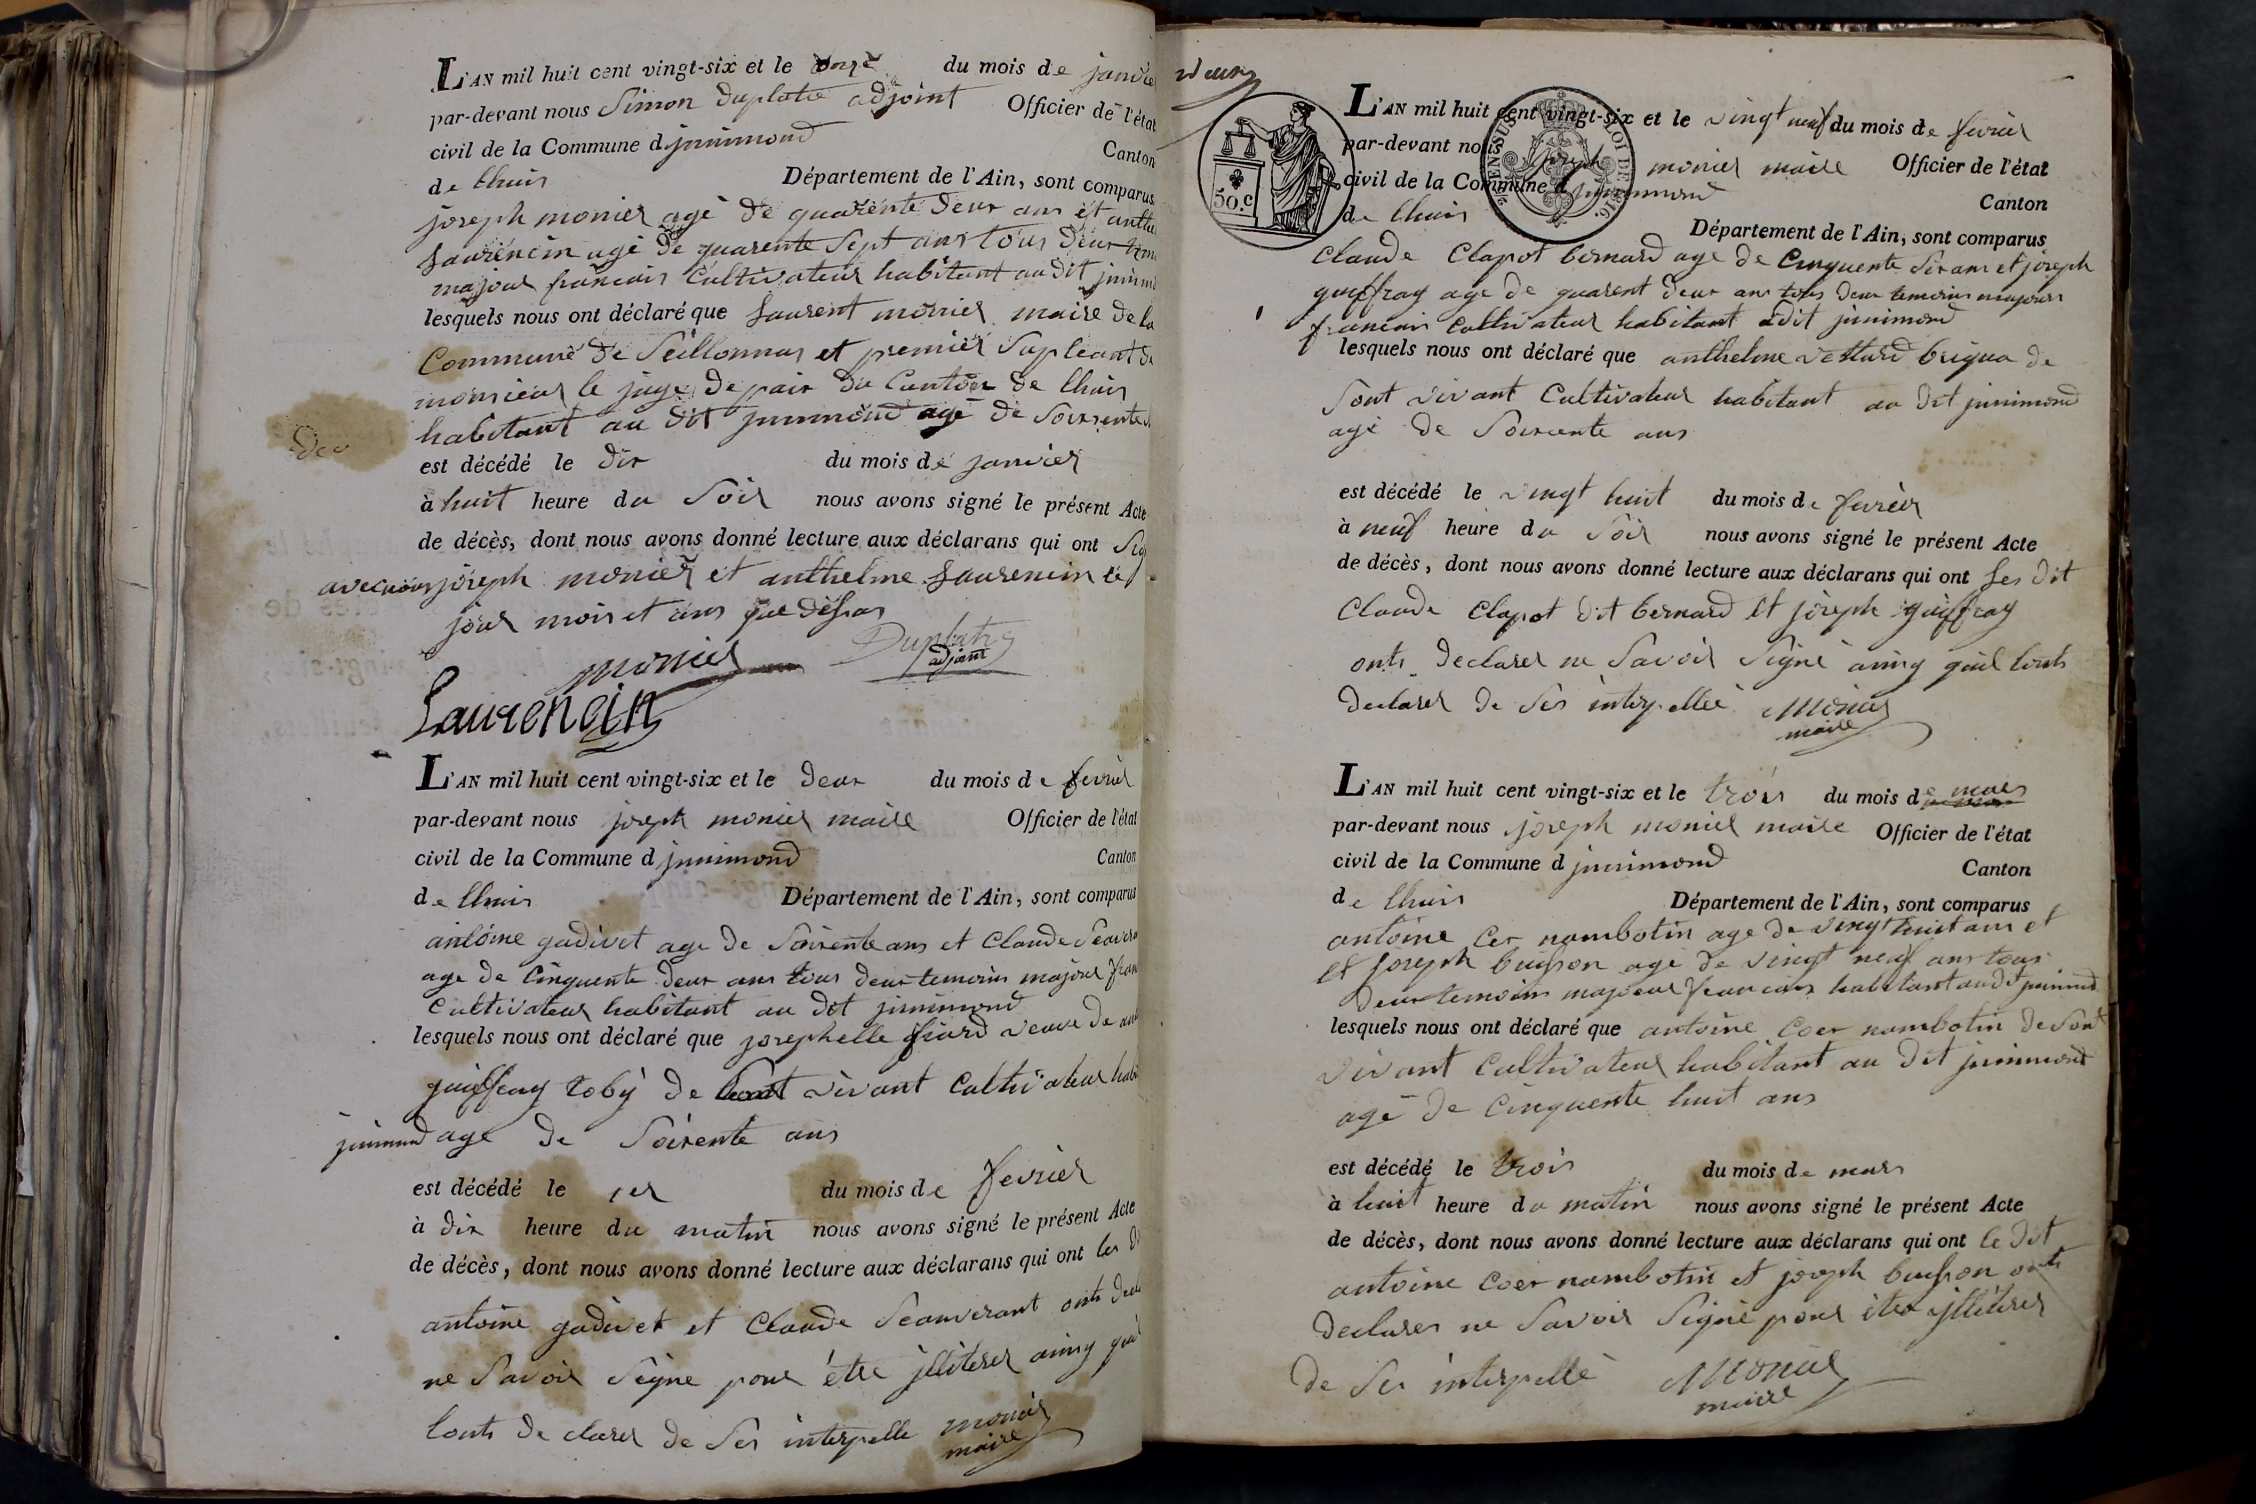 L'AN mil huit cent vingt-six et le onze du mois de janvie
par-devant nous Simon duplatre adjoint Officier de l'état
civil de la Commune d junimond Canton
de lhuis Département de l'Ain, sont comparus
joseph monier agé de quarente deux ans et anthe
Laurencin agé de quarente Sept ans tous deux tem
majeur francais Cultivateur habitant au dit junimd
lesquels nous ont déclaré que Laurent monier maire de la
Commune de Seillonnas et premier Supleant de
monsieur le juge de paix du Canton de lhuis
habitant au dit junimond agé de Soixente
est décédé le dix du mois de janvier
à huit heure du Soir nous avons signé le présent Acte
de décès, dont nous avons donné lecture aux déclarans qui ont Sig
avec nous joseph monier et anthelme Laurencin le
jour mois et ans que desus
monier Duplatre
adjoint
Laurencin
L'AN mil huit cent vingt-six et le deux du mois de fevrier
par-devant nous joseph monier maire Officier de l'état
civil de la Commune d junimond Canton
de lhuis Département de l'Ain, sont comparus
antoine gadivet age de Soixente ans et Claude
age de Cinquente deux ans tous deux temoins majeur fran
Cultivateur habitant au dit junimond
lesquels nous ont déclaré que josephelle fiard veuve de
guiffray toby de vivant Cultivateur habi
junimond age de Soixente ans
est décédé le 1er du mois de fevrier
à dix heure du matin nous avons signé le présent Acte
de décès, dont nous avons donné lecture aux déclarans qui ont les d
antoine gadivet et Claude Seauverant onts decla
ne Savoir Signe pour être jlliterer ainsy quil
lonts de clarer de Ses interpelle monier
maire
L'AN mil huit cent vingt-six et le vingt neuf du mois de fevrier
par-devant nous joseph monier maire Officier de l'état
civil de la Commune d junimond Canton
de lhuis Département de l'Ain, sont comparus
50.c
LOI DE 1816.
Claude Clapot bernard age de Cinquente Six ans et joseph
guiffray age de quarent deux ans tous deux temoins majeurs
francais Cultivateur habitant adit junimond
lesquels nous ont déclaré que anthelme vettard brigua de
Sont vivant Cultivateur habitant au dit junimond
agé de Soixcente ans
est décédé le vingt huit du mois de fevrier
à neuf heure du Soir nous avons signé le présent Acte
de décès, dont nous avons donné lecture aux déclarans qui ont Les dit
Claude Clapot dit bernard et joseph guiffray
onts declarer ne Savoir Signé ainsy quil lonts
declarer de Ses interpellée Monier
maire
L'AN mil huit cent vingt-six et le trois du mois de mars
par-devant nous joseph monier maire Officier de l'état
civil de la Commune d junimond Canton
de lhuis Département de l'Ain, sont comparus
antoine Coer nambotin age de vingt huit ans et
et joseph buisson age de vingt neuf ans tous
deux temoins majeeur francais habitant audt junimond
lesquels nous ont déclaré que antoine Coer nambotin de Sont
vivant Cultivateur habitant au dit junimond
agé de Cinquente huit ans
est décédé le trois du mois de mars
à huit heure du matin nous avons signé le présent Acte
de décès, dont nous avons donné lecture aux déclarans qui ont le dit
antoine Coer nambotin et joseph buisson onts
declarer ne Savoir Signé pour être jlliterer
de Ses interpellé Monier
maire